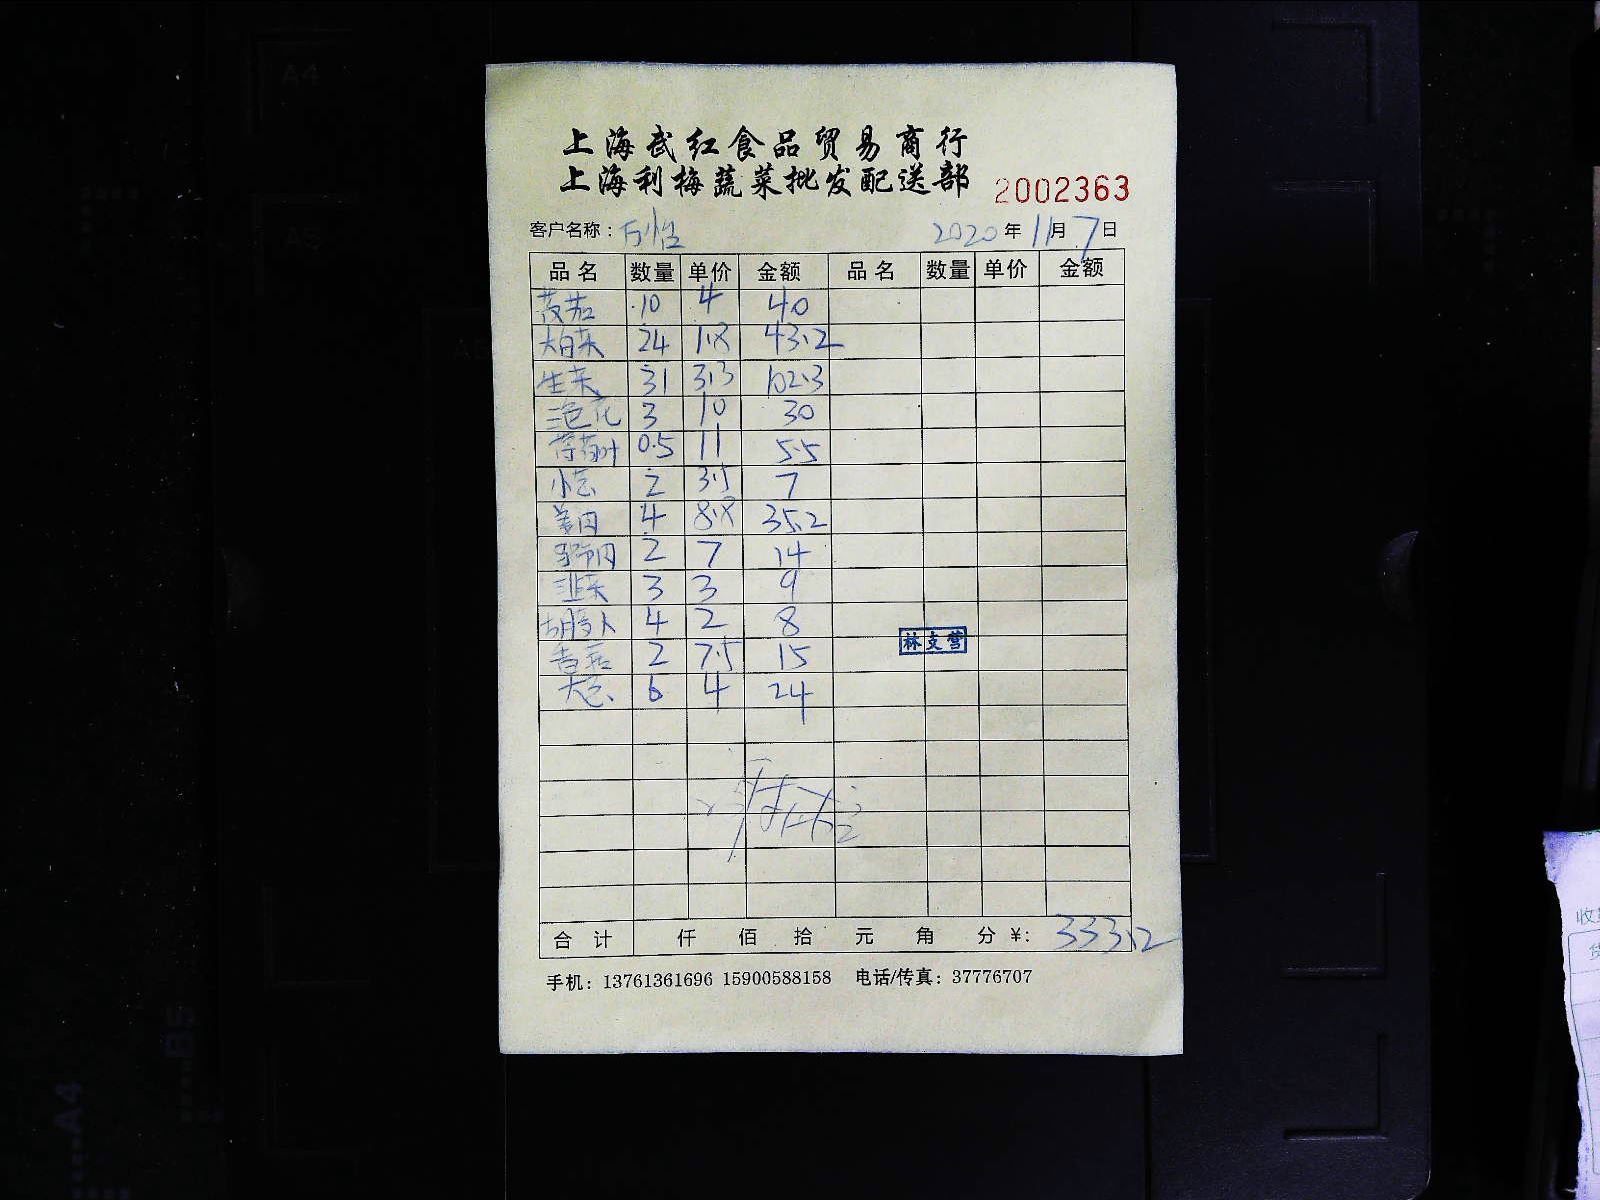 上海武红食品贸易商行
上海利梅蔬菜批发配送部 2002363
客户名称： 2020年11月7日
品名 数量 单价 金额 品名 数量 单价 金额
茂茄 10 4 40
大白菜 24 1.8 43.2
生菜 31 3.3 102.3
三色花 3 10 30
荷叶 0.5 11 5.5
小葱 2 3.5 7
姜肉 4 8.8 35.2
2 7 14
韭菜 3 3 9
胡萝卜 4 2 8
林支营
香菇 2 7.5 15
大葱 6 4 24
合计 仟 佰 拾 元 角 分 ¥: 333.2
手机：13761361696 15900588158 电话/传真：37776707